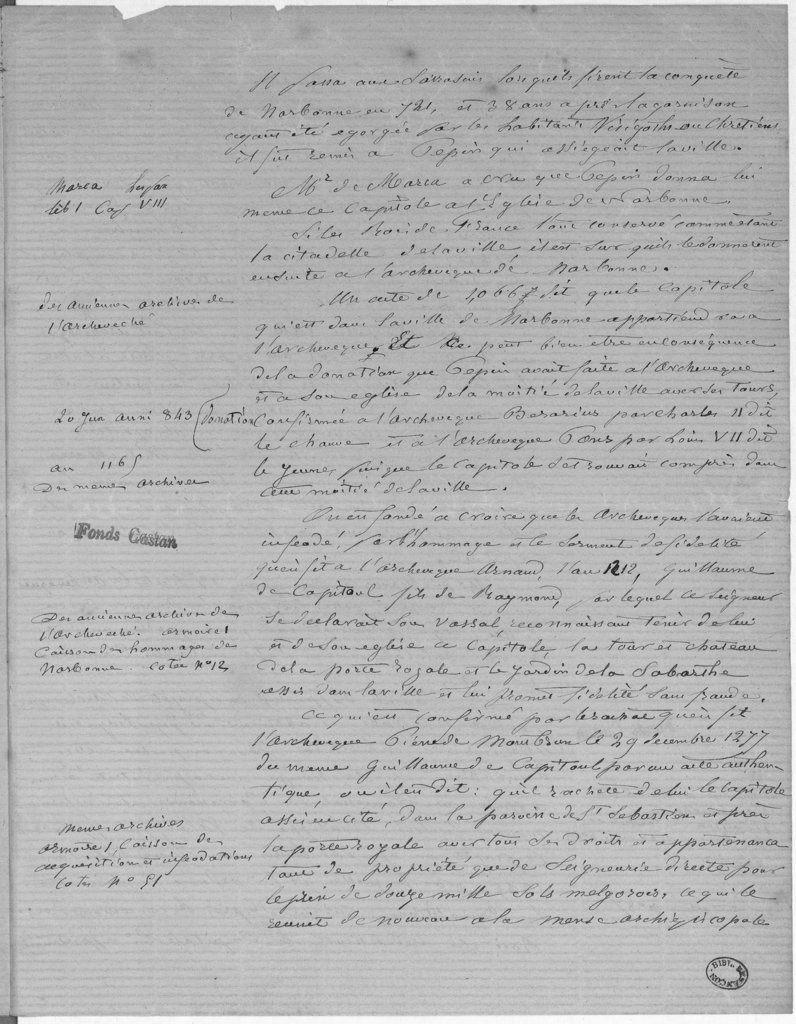 Il passa aux Sarrasins lorsqu'ils firent la conquête
de Narbonne en 721, et 38 ans après la garnison
ayant été egorgée par les habitants Visigoths ou Chretiens
il fut remis a Pepin qui assiégeait la ville.
Marca
lib 1 Cap VIII
Mr de Marca a cru que Pepin donna lui
meme ce Capitole a l'Eglise de Narbonne.
Si les Rois de France l'ont conservé comme étant
la citadelle de la ville il est sur qu'ils le donnerent
ensuite a l'archeveque de Narbonne.
des anciennes archives de
l'Archeveché
Un acte de 1066 dit que le Capitole
qu'est dans la ville de Narbonne appartiendra a
l'archeveque. Et Ce peut bien etre en conséquence
de la donation que Pepin avait faite a l'Archeveque
et a son eglise de la moitié de la ville avec ses tours,
20 Jun anni 843 (Donation
Confirmée a l'archeveque Berarius par charles II dit
le chauve et à l'archeveque Pons par Louis VII dit
an 1165
Des memes archives
le jeune, puisque le Capitole se trouvait compris dans
cette moitié de la ville.
Fonds Castan
On est fondé a croire que les Archeveques l'avaient
infeodé, par l'hommage et le serment de fidelité
qu'en fit a l'archeveque Arnaud, l'an 1212, Guillaume
de Capitoul fils de Raymond, par lequel ce Seigneur
Des anciennes archives de
l'Archeveché. armoire 1
Caisson des hommages de
Narbonne. cotée no 12
se declarait son vassal reconnaissant tenir de lui
et de son eglise ce Capitole, la tour et chateau
de la porte royale et le jardin de la Sabarthe
assis dans la ville et lui promet fidelité sans fraude.
Ce qu'est confirmé par le rachat qu'en fit
l'Archeveque Pierre de Montbrun le 29 decembre 1277
du meme Guillaume de Capitoul par un acte authen-
tique ou il en dit: qu'il rachete de lui le Capitole
assis en cité, dans la paroisse de St Sebastien et près
Memes archives
armoire 1, Caisson des
acquisitions et infeodations
Cotée no 51
la porte royale avec tous ses droits et appartenances
tant de propriété que de Seigneurie directe pour
le prix de douze mille sols melgorois, ce qui le
reunit de nouveau a la mense archiepiscopale
BIBL. DE BESANÇON